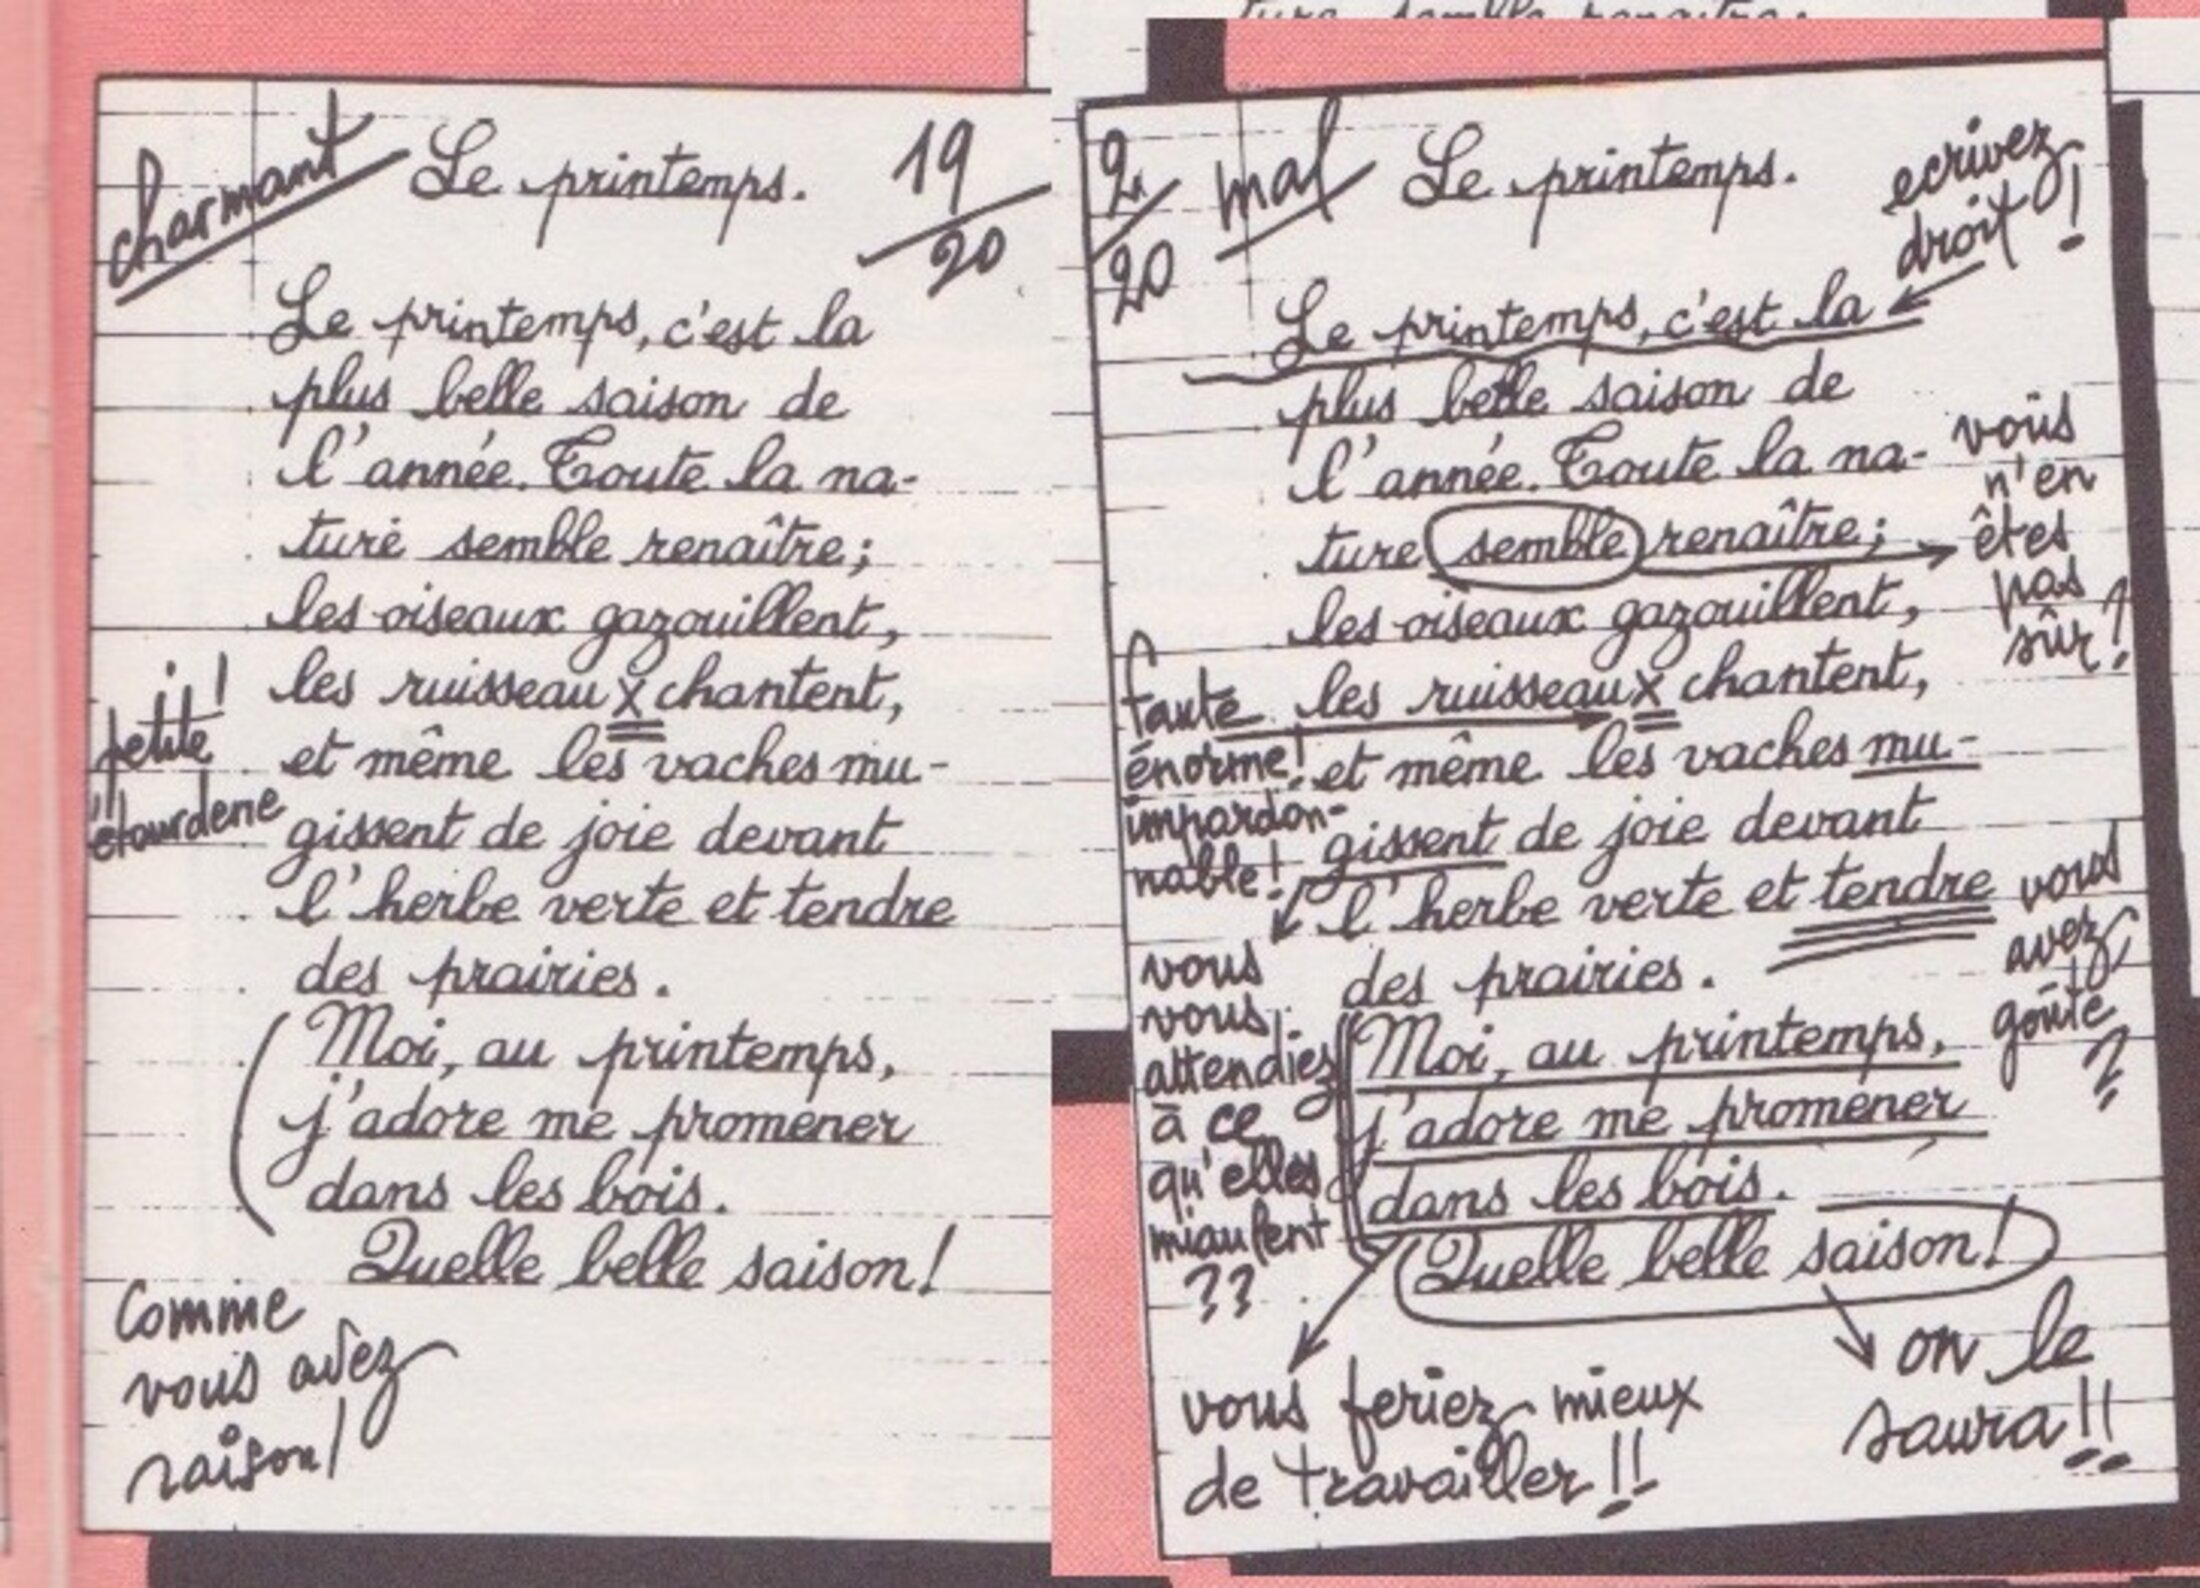 ture semble renaître;
charmant
Le printemps.
19
20
Le printemps, c'est la
plus belle saison de
l'année. Toute la na-
ture semble renaître;
les oiseaux gazouillent,
les ruisseaux chantent,
et même les vaches mu-
gissent de joie devant
l'herbe verte et tendre
des prairies.
Moi, au printemps,
j'adore me promener
dans les bois.
Quelle belle saison!
petite !
étourderie
Comme
vous avez
raison!
2
20
mal
Le printemps.
ecrivez
droit !
Le printemps, c'est la
plus belle saison de
l'année. Toute la na-
ture semble renaître;
les oiseaux gazouillent,
les ruisseaux chantent,
et même les vaches mu-
gissent de joie devant
l'herbe verte et tendre
des prairies.
Moi, au printemps,
j'adore me promener
dans les bois.
Quelle belle saison!
vous
n'en
êtes
pas
sûr?
faute
énorme!
impardon-
nable!
vous
vous
attendiez
à ce
qu'elles
miaulent
??
vous
avez
goûté
?
vous feriez mieux
de travailler!!
on le
saura!!